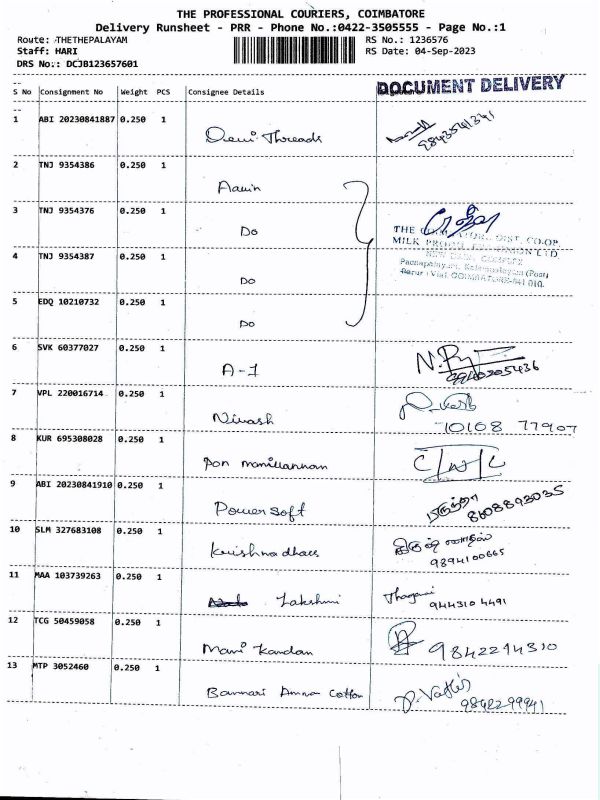 THE PROFESSIONAL COURIERS, COIMBATORE
Delivery Runsheet - PRR - Phone No.:0422-3505555 - Page No.:1
Route: THETHEPALAYAM RS No.: 1236576
Staff: HARI RS Date: 04-Sep-2023
DRS No.: DCJB123657601
DOCUMENT DELIVERY
S No Consignment No Weight PCS Consignee Details
1 ABI 20230841887 0.250 1
Devi Threads
2 TNJ 9354386 0.250 1
Aavin
3 TNJ 9354376 0.250 1
Do
THE DIST. CO-OP.
MILK UNION LTD.
4 TNJ 9354387 0.250 1
Do
5 EDQ 10210732 0.250 1
Do
6 SVK 60377027 0.250 1
A-1
7 VPL 220016714 0.250 1
Nivash
10108 77907
8 KUR 695308028 0.250 1
9 ABI 20230841910 0.250 1
Power soft
8608893035
10 SLM 327683108 0.250 1
Krishna dhars
9894100665
11 MAA 103739263 0.250 1
Lakshmi
944310 4491
12 TCG 50459058 0.250 1
Mani Kandan
9842214310
13 MTP 3052460 0.250 1
Bannari Amna Cotton
9842299941